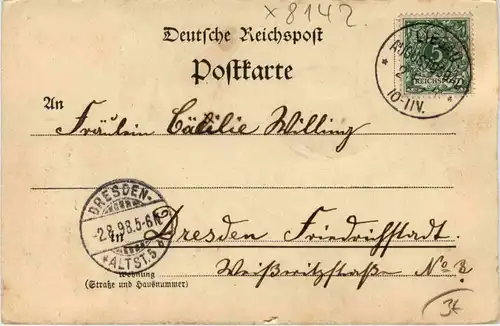 x 8142.
Deutsche Reichspost
Postkarte
5
REICHSPOST
10-11V.
An
Fräulein Cäcilie Willing
DRESDEN-
-2.8.98.5-6
*ALTST.5
in
Dresden Friedrichstadt.
Wohnung
(Straße und Hausnummer)
Weißeritzstraße No 3